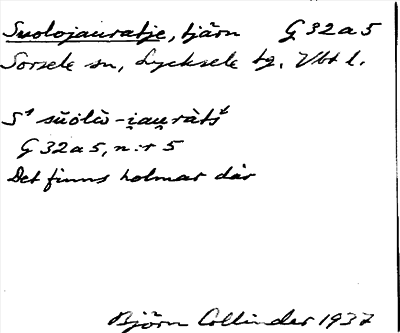 Suolojauratje, tjärn G 32 a 5
Sorsele sn, Lycksele tg. Vbt l.
S¹ sŭölŭ̀-i̯au̯ràtś
G 32 a 5, n:r 5
Det finns holmar där
Björn Collinder 1937